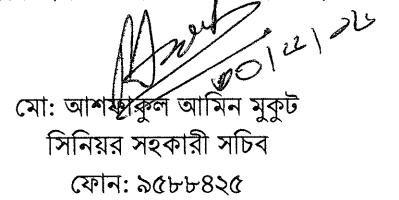 মো: আশফাকুল আমিন মুকুট
সিনিয়র সহকারী সচিব
ফোন: ৯৫৮৮৪২৫